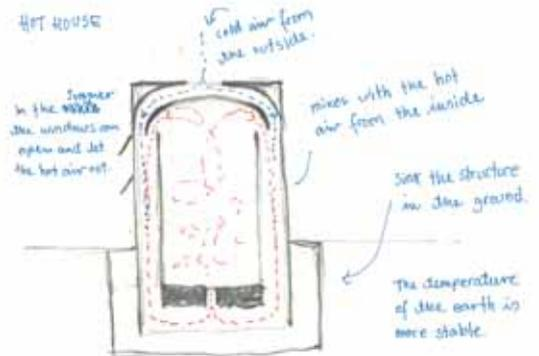 HOT HOUSE
cold air from
the outside.
In the summer
the windows can
open and let
the hot air out.
mixes with the hot
air from the inside
sink the structure
in the ground.
The temperature
of the earth is
more stable.